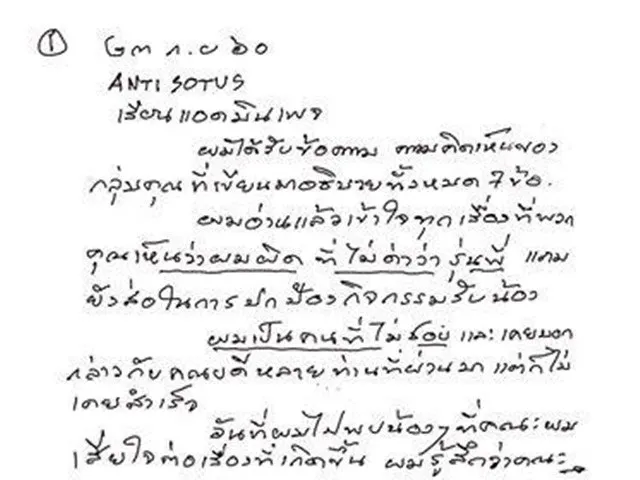 ① ๒๓ ก.ย ๖๐
ANTI SOTUS
เรียนแอดมินเพจ
ผมได้รับข้อความ ความคิดเห็นของ
กลุ่มคุณที่เขียนมาอธิบายทั้งหมด 7 ข้อ.
ผมอ่านแล้วเข้าใจทุกเรื่องที่พวก
คุณเห็นว่าผมผิด ที่ไม่ด่าว่ารุ่นพี่ แถม
ยังส่อในการปกป้องกิจกรรมรับน้อง
ผมเป็นคนที่ไม่ชอบ และเคยบอก
กล่าวกับคณบดีหลายท่านที่ผ่านมา แต่ก็ไม่
เคยสำเร็จ
วันที่ผมไปพบน้องๆที่คณะผม
เสียใจต่อเรื่องที่เกิดขึ้น ผมรู้สึกว่าคณะ